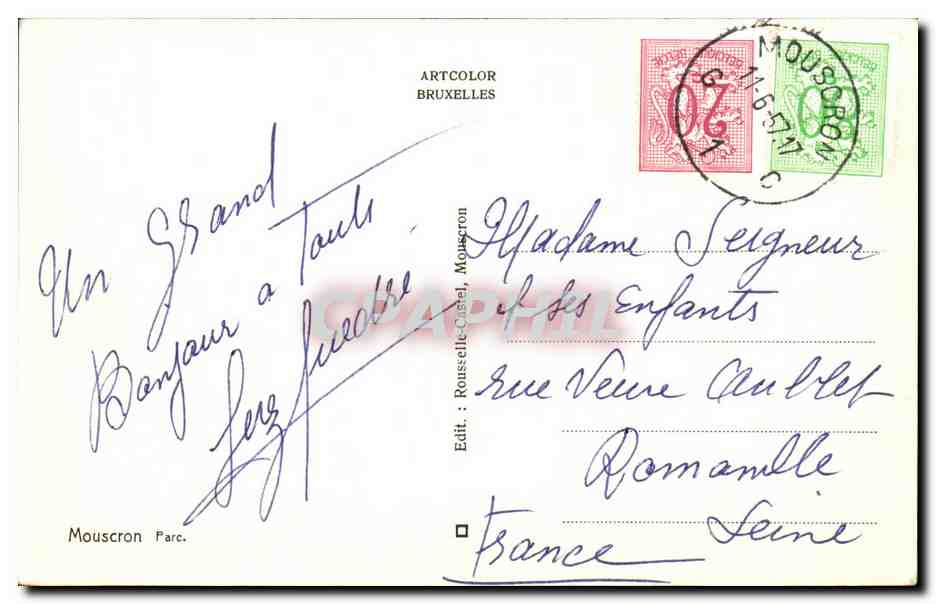 ARTCOLOR
BRUXELLES
MOUSCRON
11-6-57.17
G 1 C
20
80
Un Grand
Bonjour a Touts
Edit. : Rousselle-Castel, Mouscron
CPAPHIL
Madame Seigneur
et Ses Enfants
rue Veuve Aublet
Romainville
Seine
France
Mouscron Parc.